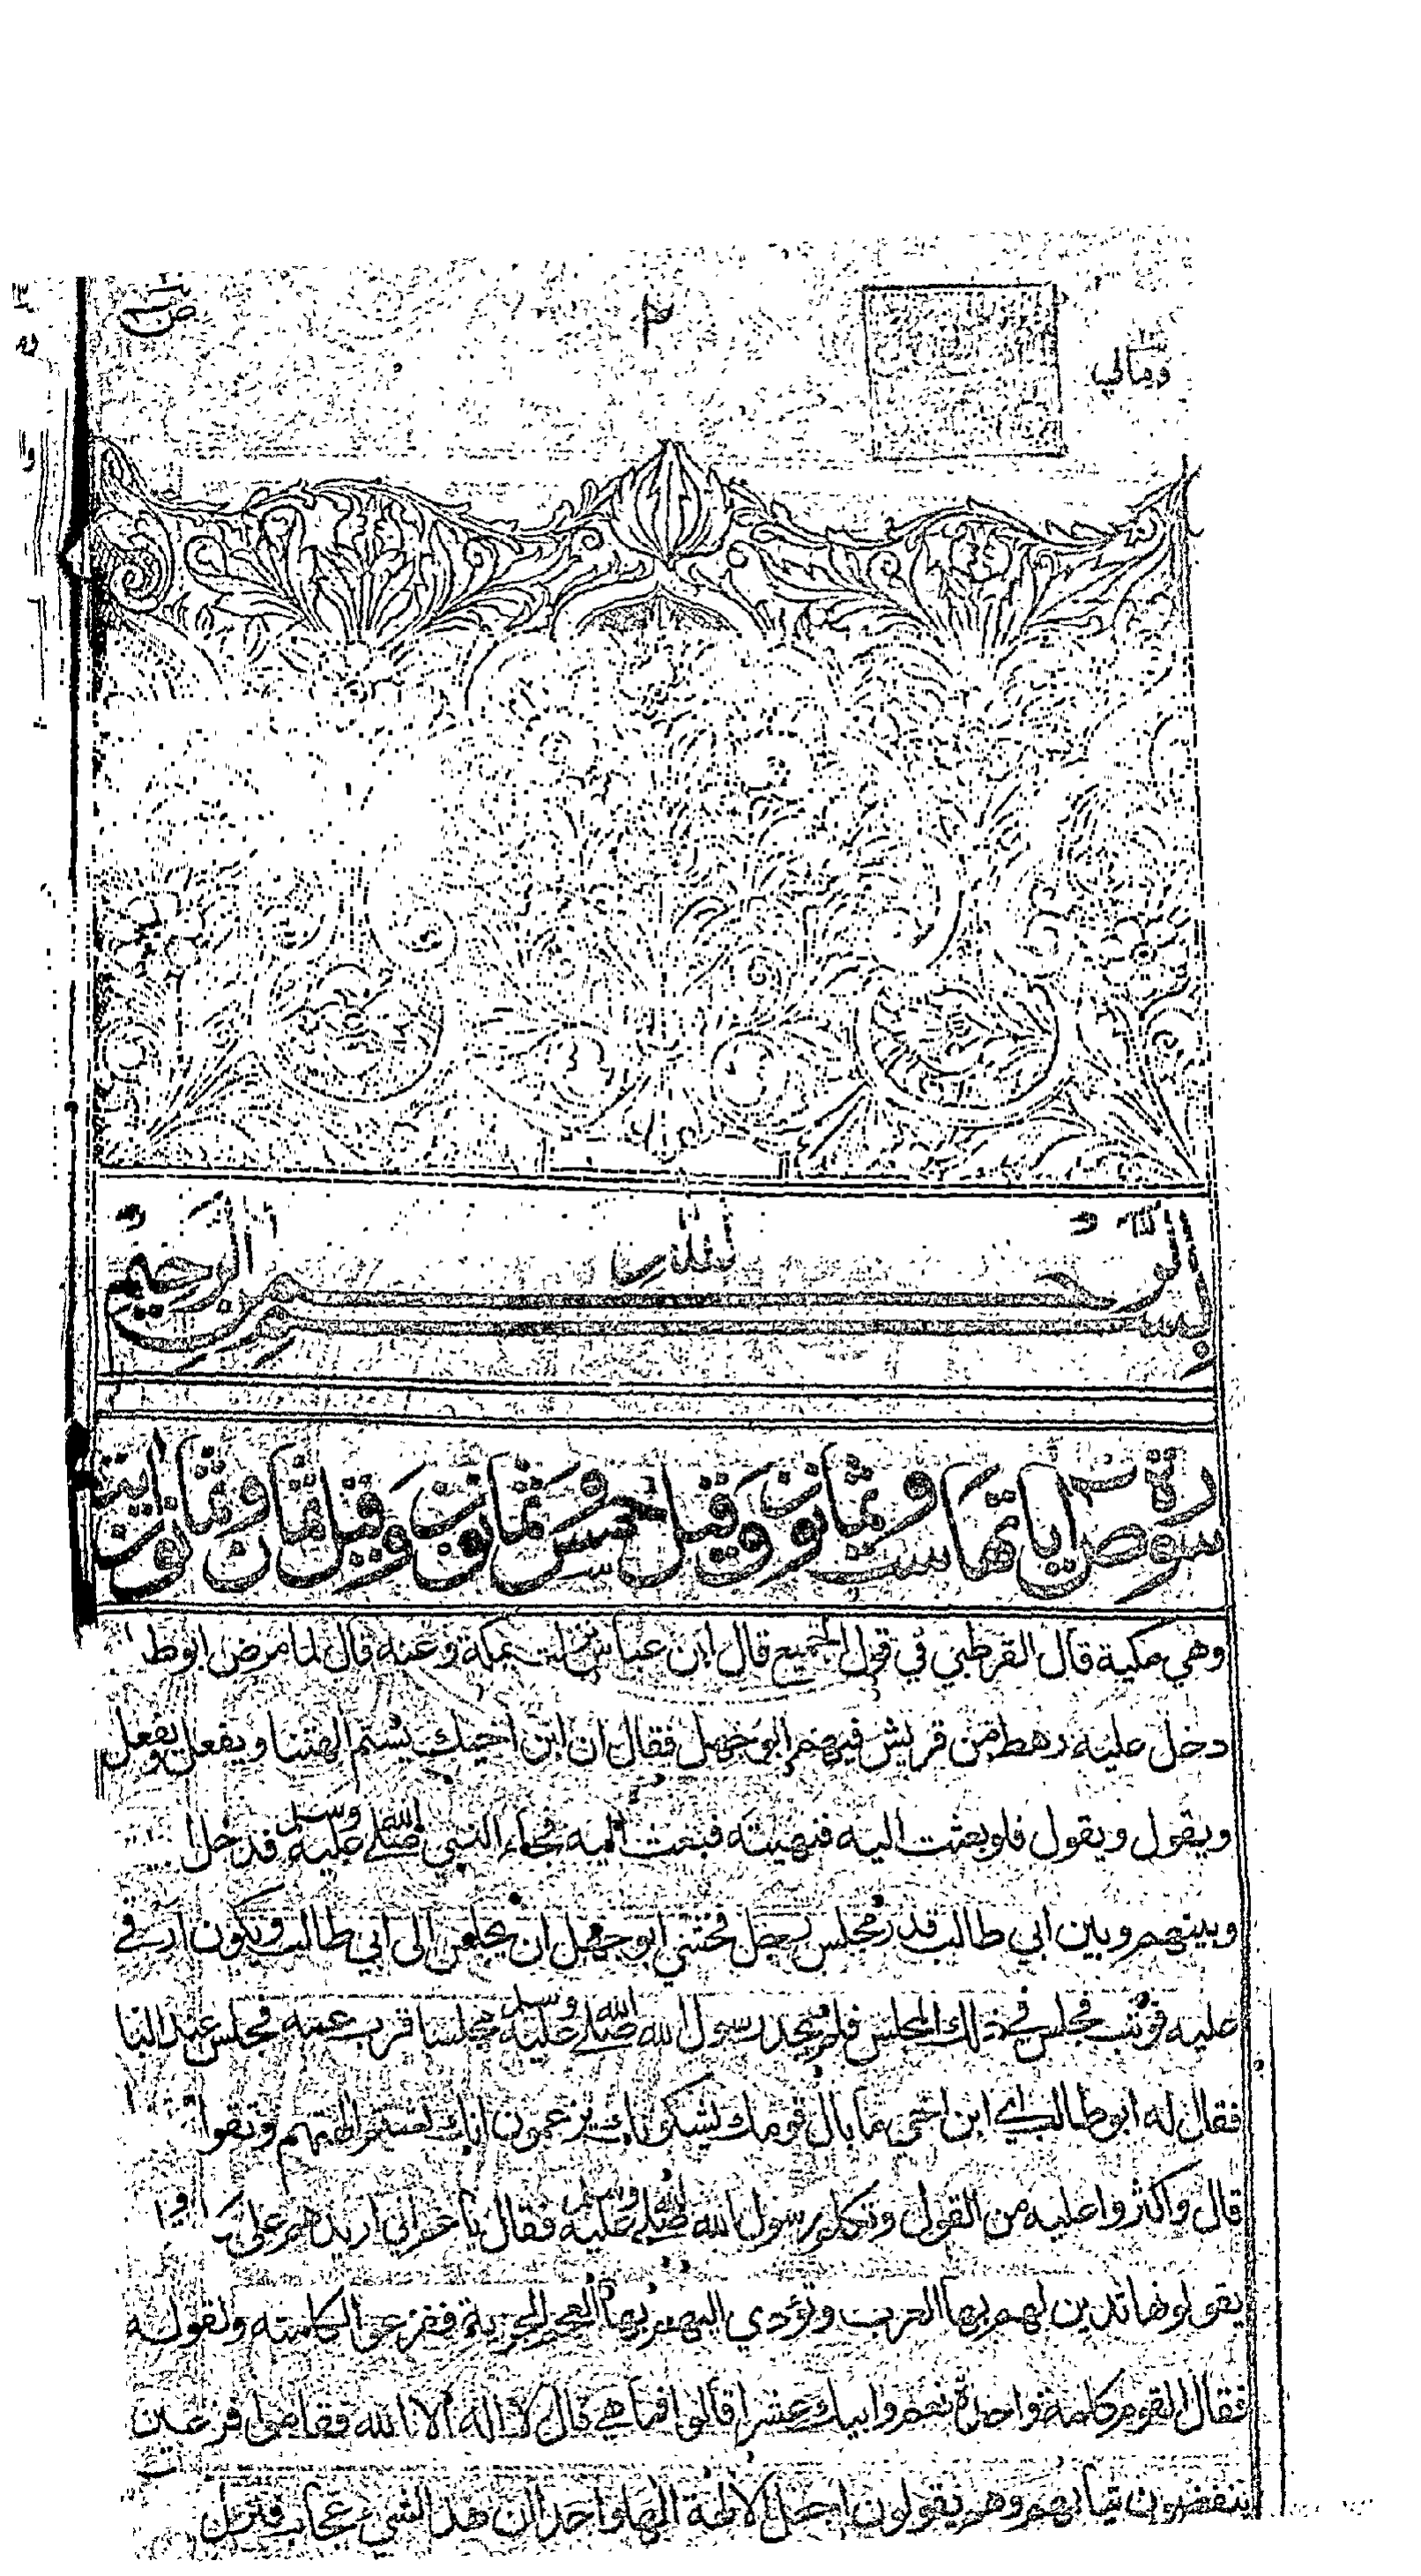 ومالي
٢
ص
بسم الله الرحمن الرحيم
سورة ص اياتها ست وثمانون وقيل خمس وثمانون وقيل ثمان وثمانون اية
وهي مكية قال القرطبي في قول الجميع قال ابن عباس نزلت بمكة وعنه قال لما مرض ابو طا
دخل عليه رهط من قريش فيهم ابو جهل فقال ان ابن اخيك يشتم الهتنا ويفعل ويفعل
ويقول ويقول فلو بعثت اليه فنهيته فبعث اليه فجاء النبي صلى الله عليه وسلم فدخل ا
وبينهم وبين ابي طالب قدر مجلس فخشي ابو جهل ان يجلس الى ابي طالب ويكون ارق
عليه فوثب فجلس في ذلك المجلس فلم يجد رسول الله صلى الله عليه وسلم مجلسا قرب عمه فجلس عند البا
فقال له ابو طالب اي ابن اخي ما بال قومك يشكونك يزعمون انك تشتم الهتهم وتقول
قال واكثروا عليه من القول وتكلم رسول الله صلى الله عليه وسلم فقال يا عم اني اريدهم على
يقولونها تدين لهم بها العرب وتؤدي اليهم بها العجم الجزية ففزعوا لكلمته ولقوله
فقال القوم كلمة واحدة نعم وابيك عشرا قالوا فما هي قال لا اله الا الله فقاموا فزعين
ينفضون ثيابهم وهم يقولون اجعل الالهة الها واحدا ان هذا لشيء عجاب فنزل